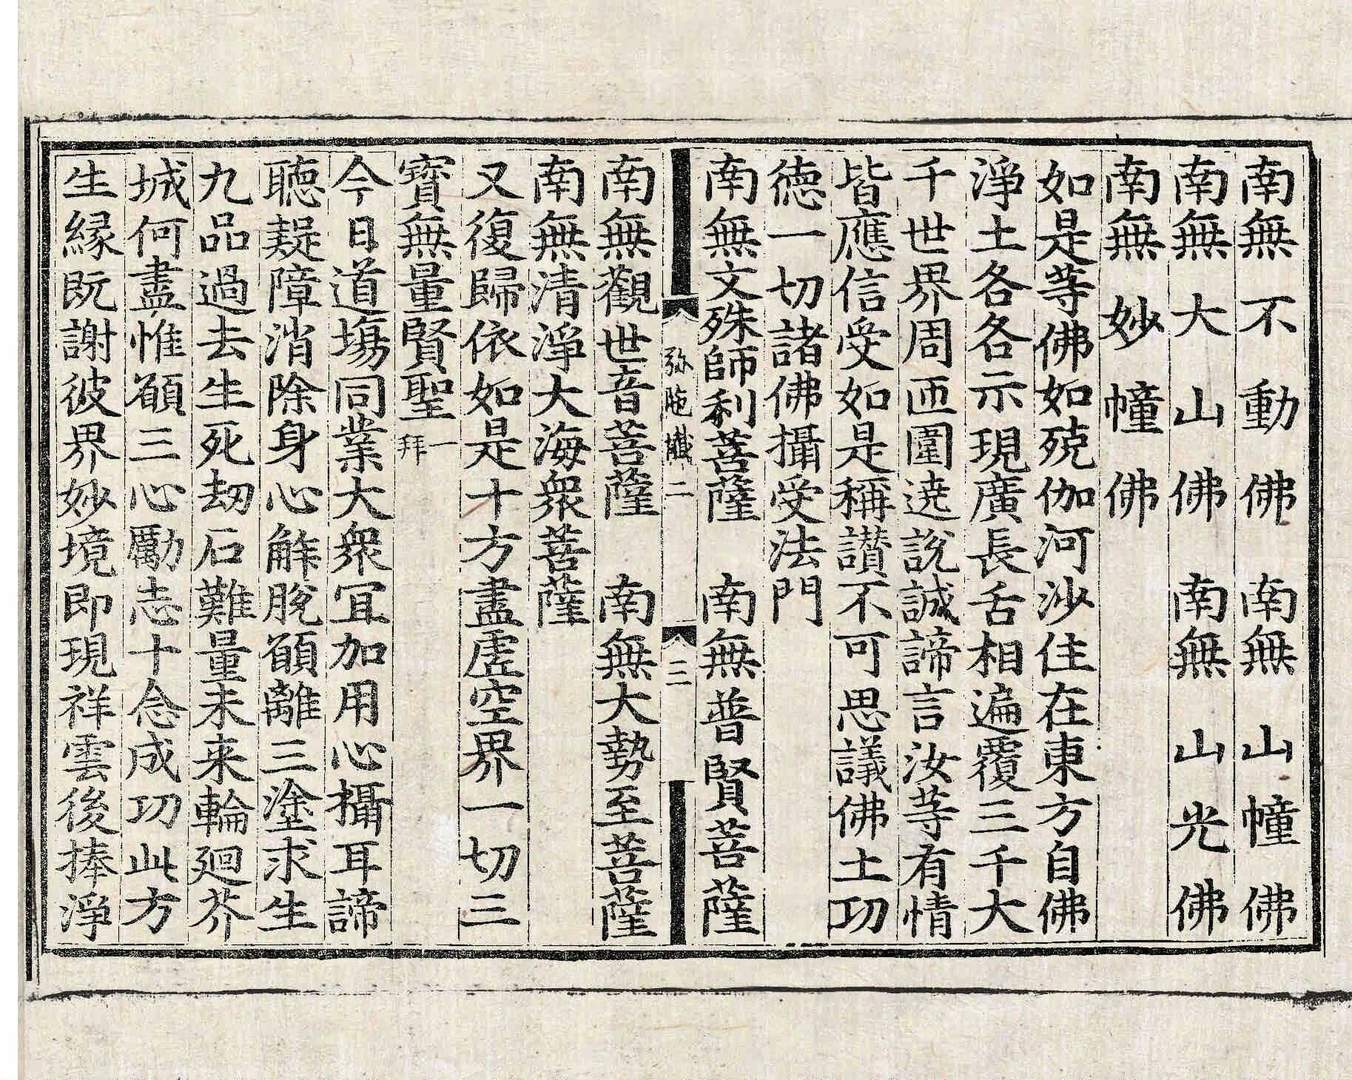 南無不動佛　南無山幢佛
南無大山佛　南無山光佛
南無妙幢佛
如是等佛如殑伽河沙住在東方自佛
淨土各各示現廣長舌相遍覆三千大
千世界周匝圍遶說誠諦言汝等有情
皆應信受如是稱讃不可思議佛土功
德一切諸佛攝受法門
南無文殊師利菩薩　南無普賢菩薩
弥陀懴二　三
南無觀世音菩薩　南無大勢至菩薩
南無清淨大海衆菩薩
又復歸依如是十方盡虛空界一切三
寶無量賢聖一拜
今日道塲同業大衆冝加用心攝耳諦
聽疑障消除身心解脫願離三塗求生
九品過去生死劫石難量未来輪廻芥
城何盡惟願三心勵志十念成功此方
生縁既謝彼界妙境即現祥雲後捧淨